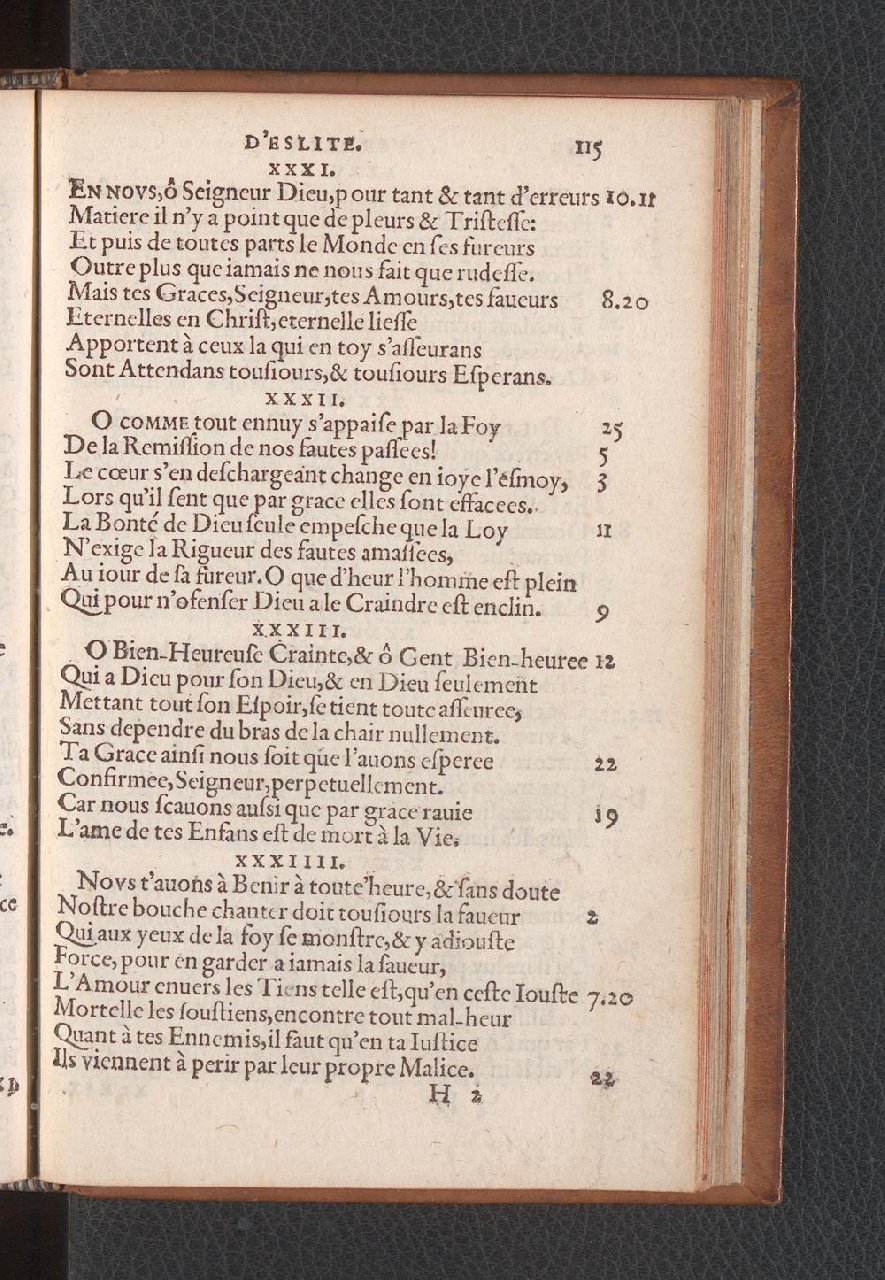 D'ESLITE. 115
XXXI.
EN NOVS, ô Seigneur Dieu, pour tant & tant d'erreurs 10.11
Matiere il n'y a point que de pleurs & Tristesse:
Et puis de toutes parts le Monde en ses fureurs
Outre plus que iamais ne nous fait que rudesse.
Mais tes Graces, Seigneur, tes Amours, tes faueurs 8.20
Eternelles en Christ, eternelle liesse
Apportent à ceux la qui en toy s'asseurans
Sont Attendans tousiours, & tousiours Esperans.
XXXII.
O COMME tout ennuy s'appaise par la Foy 25
De la Remission de nos fautes passees! 5
Le cœur s'en deschargeant change en ioye l'ésmoy, 3
Lors qu'il sent que par grace elles sont effacees.
La Bonté de Dieu seule empesche que la Loy 11
N'exige la Rigueur des fautes amassees,
Au iour de sa fureur. O que d'heur l'homme est plein
Qui pour n'ofenser Dieu a le Craindre est enclin. 9
XXXIII.
O Bien-Heureuse Crainte, & ô Gent Bien-heuree 12
Qui a Dieu pour son Dieu, & en Dieu seulement
Mettant tout son Espoir, se tient toute asseuree,
Sans dependre du bras de la chair nullement.
Ta Grace ainsi nous soit que l'auons esperee 22
Confirmee, Seigneur, perpetuellement.
Car nous scauons aussi que par grace rauie 19
L'ame de tes Enfans est de mort à la Vie.
XXXIIII.
Novs t'auons à Benir à toute'heure, & sans doute
Nostre bouche chanter doit tousiours la faueur 2
Qui aux yeux de la foy se monstre, & y adiouste
Force, pour en garder a iamais la saueur,
L'Amour enuers les Tiens telle est, qu'en ceste Iouste 7.20
Mortelle les soustiens, encontre tout mal-heur
Quant à tes Ennemis, il faut qu'en ta Iustice
Ils viennent à perir par leur propre Malice. 22
H 2